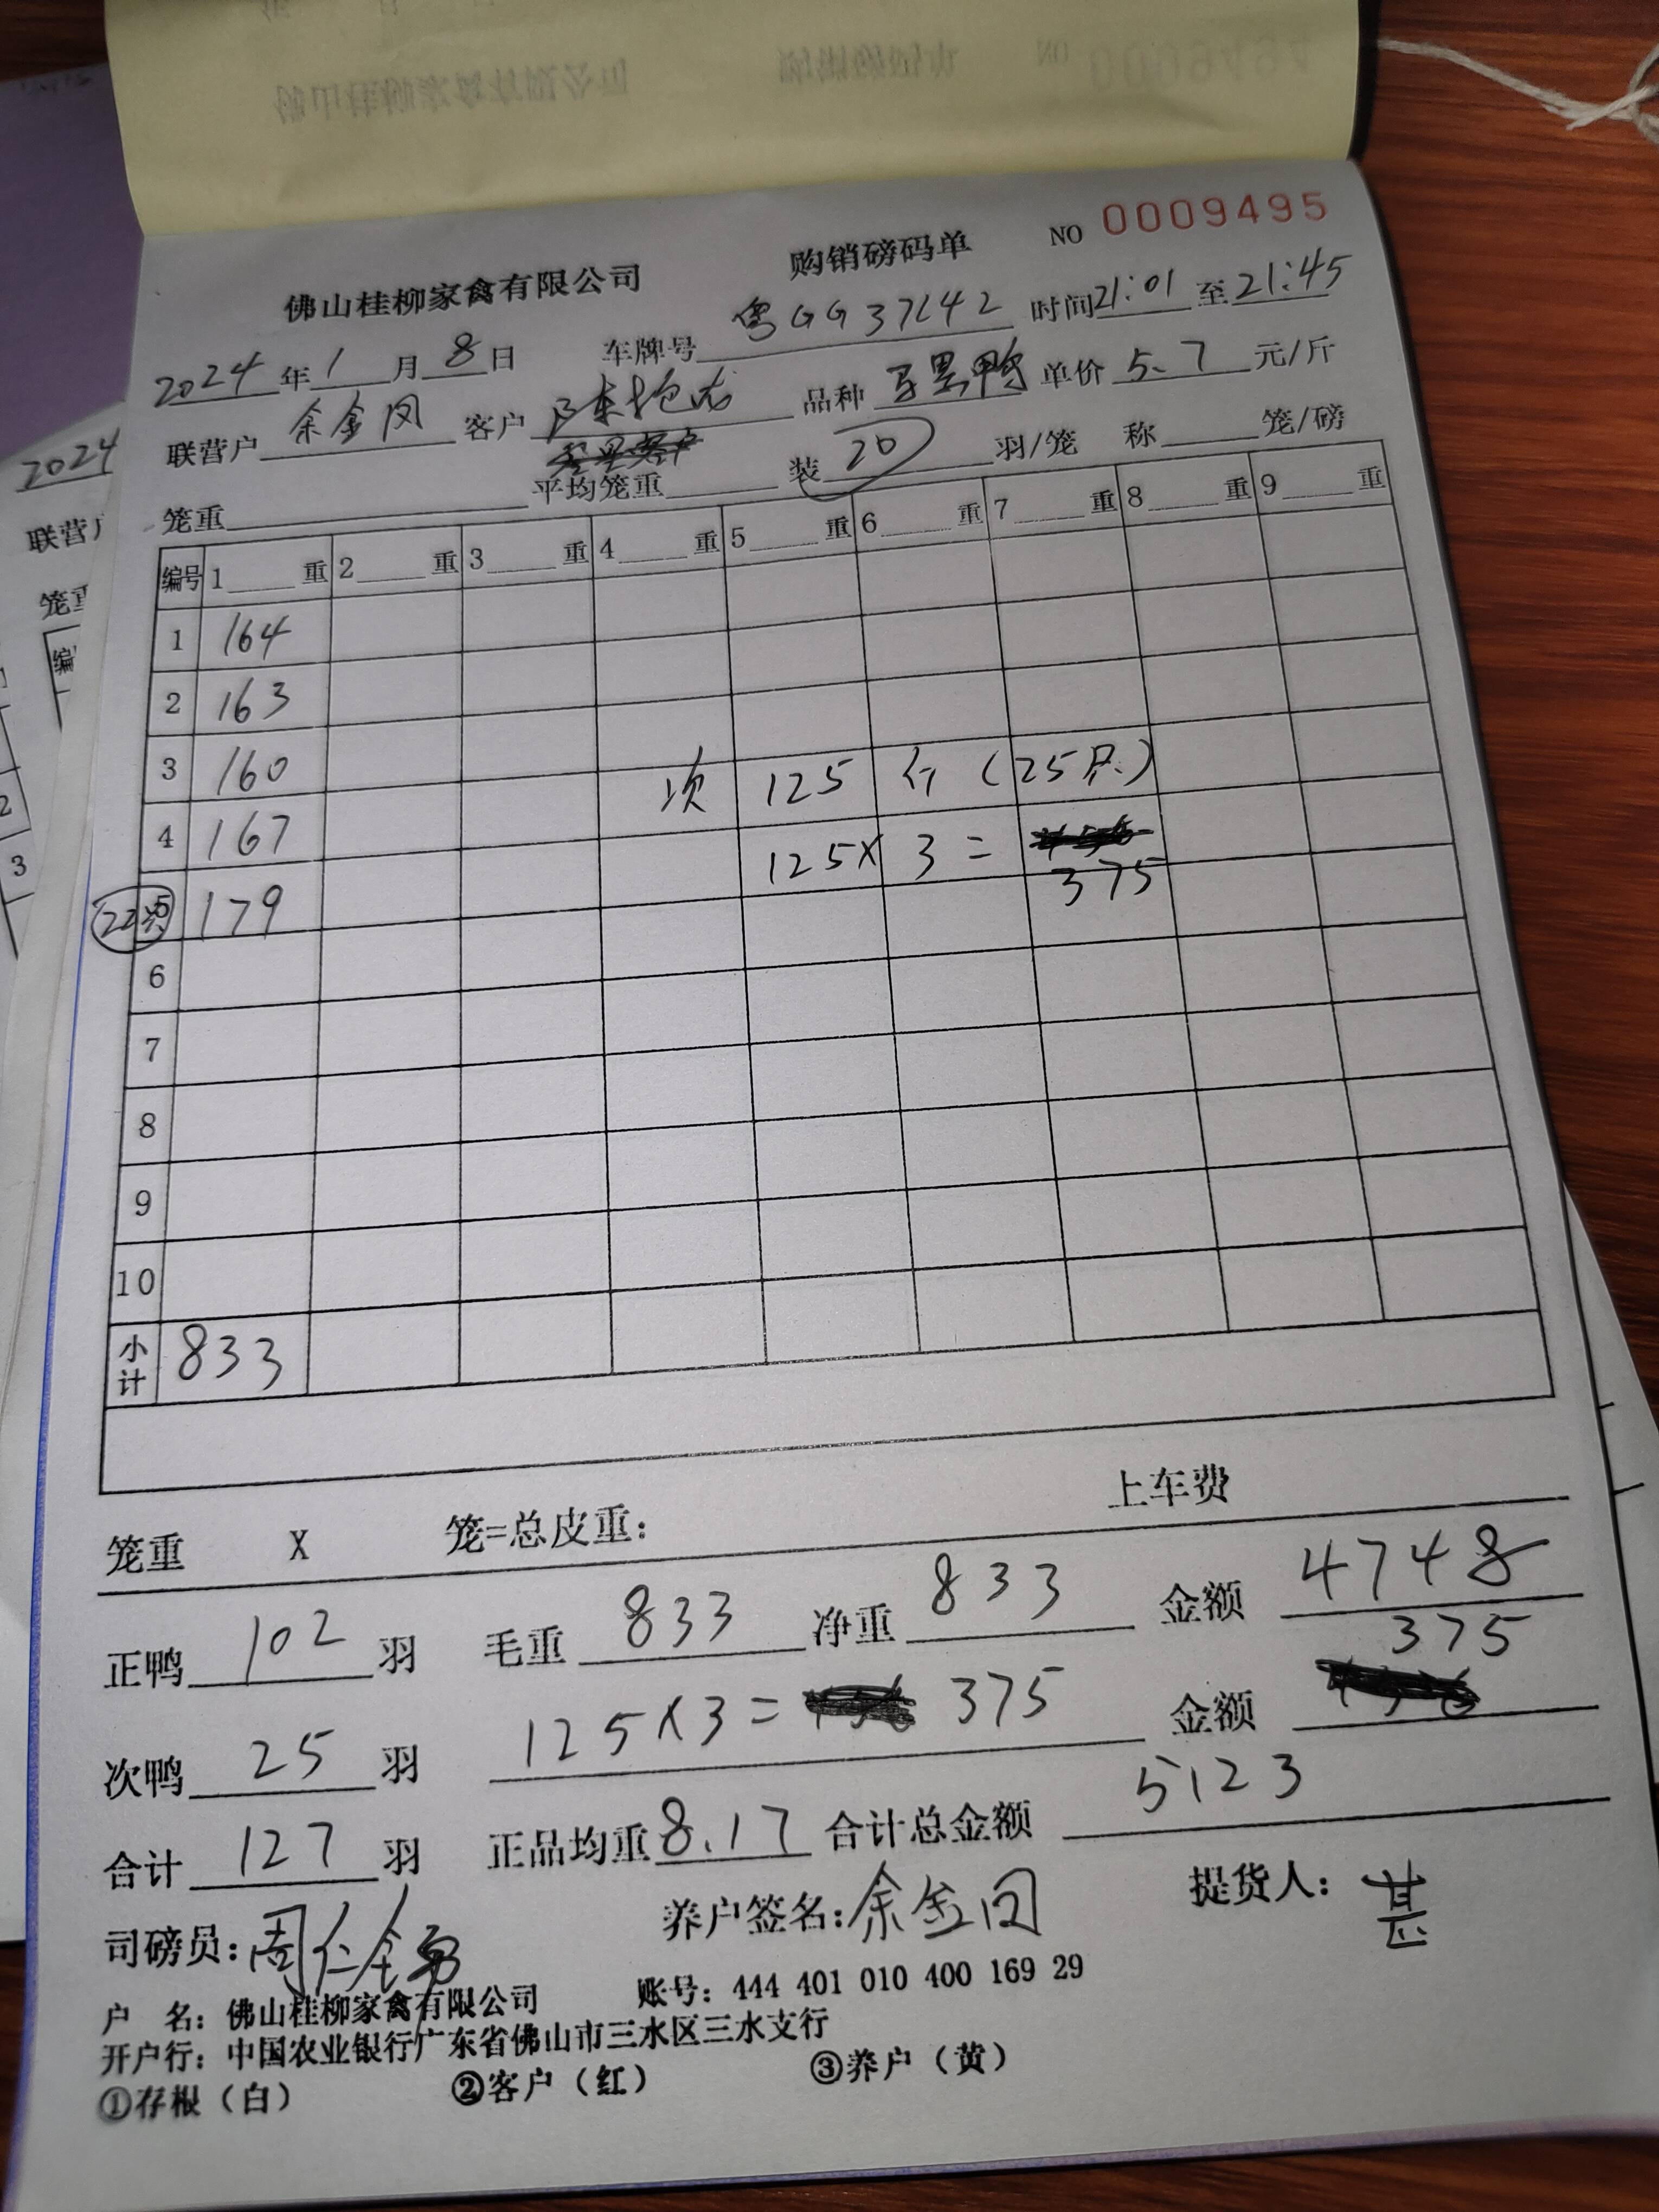 NO 0009494
佛山桂柳家禽有限公司 购销磅码单 NO 0009495
2024年1月8日 车牌号 粤GG37142 时间21:01至21:45
联营户 余金凤 客户 品种 黑鸭 单价 5.7 元/斤
笼重 平均笼重 装 20 羽/笼 称 笼/磅
编号 1 重 2 重 3 重 4 重 5 重 6 重 7 重 8 重 9 重
1 164
2 163
3 160 次 125 斤 (25只)
4 167 125×3= 375
22只 5 179
6
7
8
9
10
小计 833
笼重 X 笼=总皮重: 上车费
正鸭 102 羽 毛重 833 净重 833 金额 4748
次鸭 25 羽 125×3= 375 金额 375
合计 127 羽 正品均重 8.17 合计总金额 5123
司磅员: 养户签名: 余金凤 提货人: 甚
户 名: 佛山桂柳家禽有限公司 账号: 444 401 010 400 169 29
开户行: 中国农业银行广东省佛山市三水区三水支行
①存根(白) ②客户(红) ③养户(黄)
2024
联营户
笼重
编
2
3